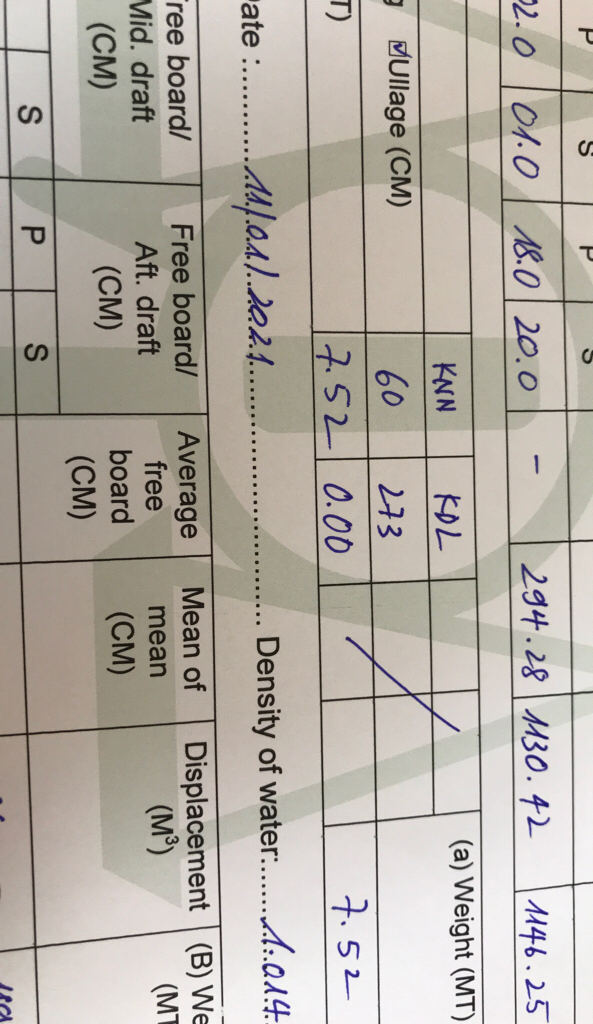 P S P S
02.0 01.0 18.0 20.0 - 294.28 1130.42 1146.25
KNN KDL (a) Weight (MT)
☑Ullage (CM) 60 273
T) 7.52 0.00 7.52
ate :..........11/01/2021.......... Density of water:......1.014..
ree board/ Mid. draft (CM) Free board/ Aft. draft (CM) Average free board (CM) Mean of mean (CM) Displacement (M³) (B) We (MT
S P S